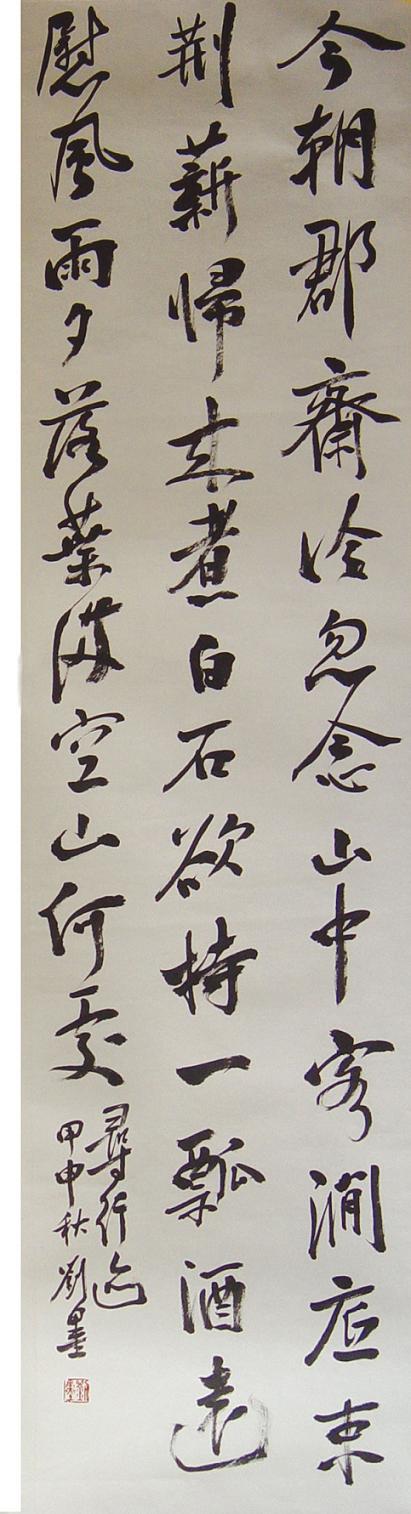 今朝郡齋冷忽念山中客澗底束
荆薪歸来煮白石欲持一瓢酒遠
慰風雨夕落葉滿空山何處
尋行迹
甲申秋劉墨